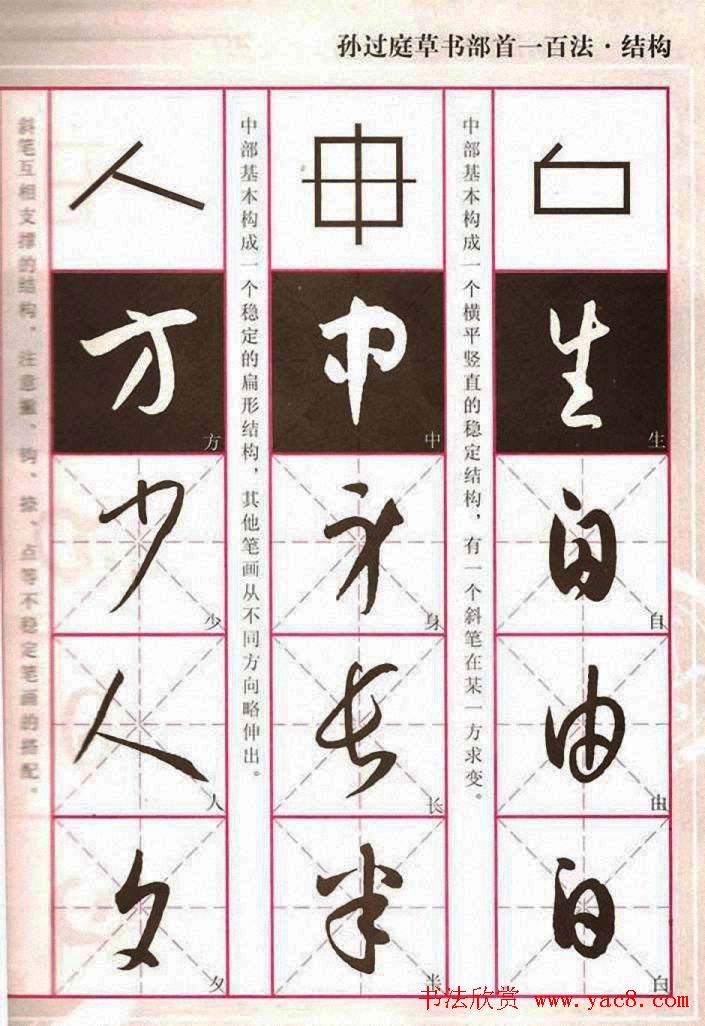 孙过庭草书部首一百法·结构
中部基本构成一个横平竖直的稳定结构，有一个斜笔在某一方求变。
生
生
自
自
由
由
白
白
中部基本构成一个稳定的扁形结构，其他笔画从不同方向略伸出。
中
中
身
身
长
长
半
半
斜笔互相支撑的结构，注意重、钩、捺、点等不稳定笔画的搭配。
人
方
方
少
少
人
人
夕
夕
书法欣赏 www.yac8.com